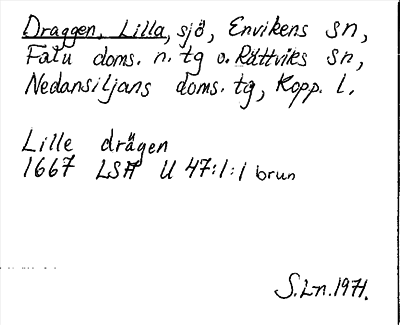 Draggen, Lilla, sjö, Envikens sn,
Falu doms. n. tg o. Rättviks sn,
Nedansiljans doms. tg, Kopp. l.
Lille drägen
1667 LSA U 47:1:1 brun
S.Ln.1971.